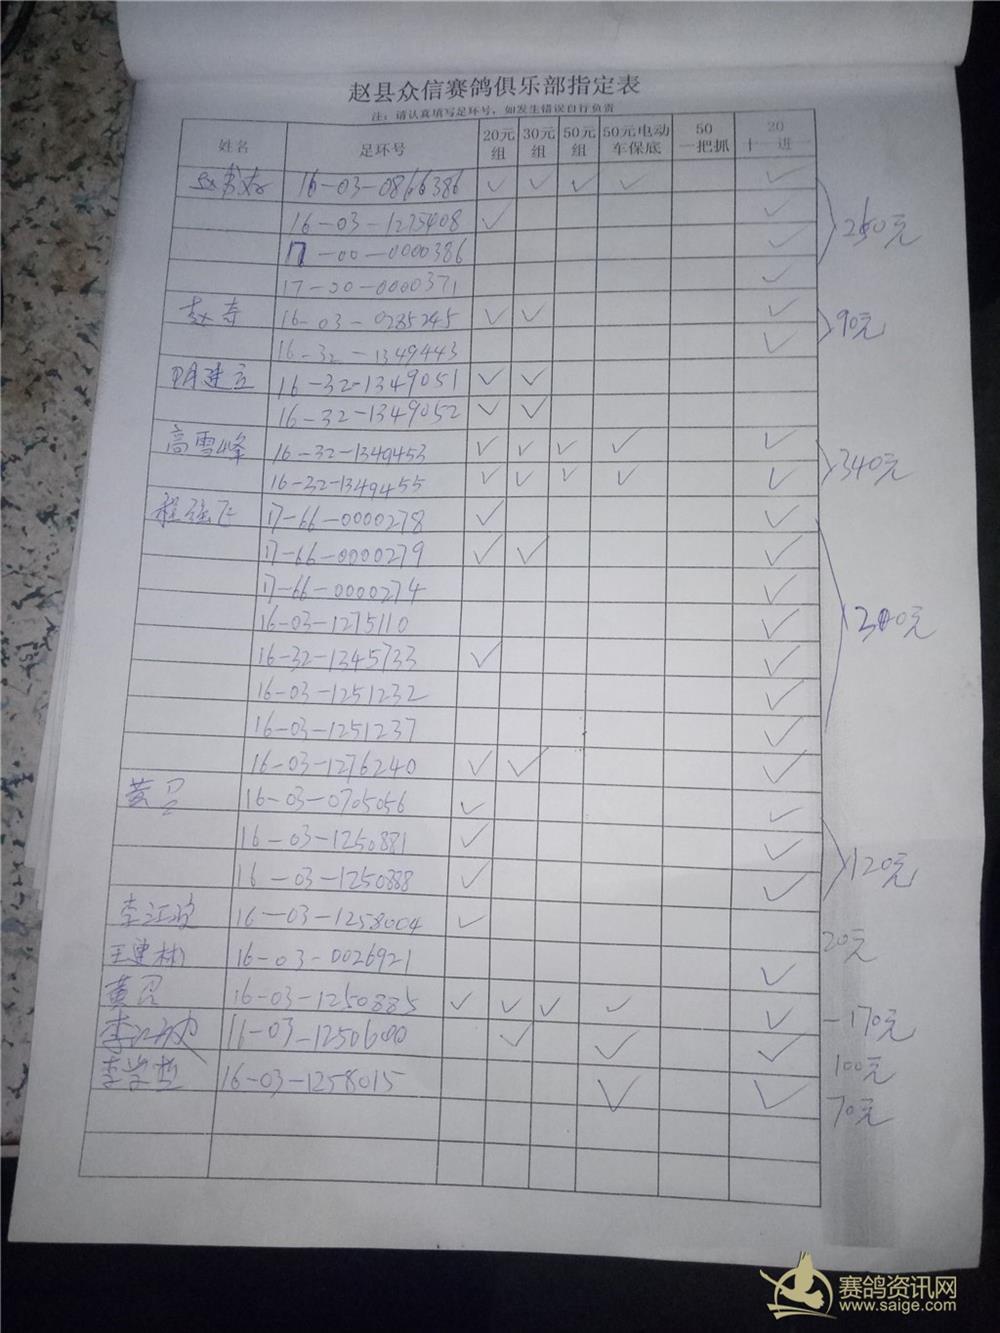 赵县众信赛鸽俱乐部指定表
注：请认真填写足环号，如发生错误自行负责
姓名 足环号 20元组 30元组 50元组 50元电动车保底 50一把抓 20十一进一
16-03-0866386 ✓ ✓ ✓ ✓ ✓
16-03-1275408 ✓ ✓
17-00-0000386 ✓
17-00-0000371 ✓
16-03-0285245 ✓ ✓ ✓ 90元
16-32-1349443 ✓
建立 16-32-1349051 ✓ ✓
16-32-1349052 ✓ ✓
高雪峰 16-32-1349453 ✓ ✓ ✓ ✓ ✓ 340元
16-32-1349455 ✓ ✓ ✓ ✓ ✓
程强飞 17-66-0000278 ✓ ✓
17-66-0000279 ✓ ✓ ✓
17-66-0000274 ✓
16-03-1275110 ✓
16-32-1345733 ✓ ✓
16-03-1251232 ✓
16-03-1251237 ✓
16-03-1276240 ✓ ✓ ✓
黄 16-03-0705056 ✓ ✓
16-03-1250881 ✓ ✓ 120元
16-03-1250888 ✓ ✓
李江波 16-03-1258004 ✓ 20元
王建林 16-03-0026921 ✓
黄召 16-03-1250885 ✓ ✓ ✓ ✓ ✓ -170元
李江波 16-03-1250600 ✓ ✓ ✓ 100元
李 16-03-1258015 ✓ ✓ 70元
赛鸽资讯网
www.saige.com